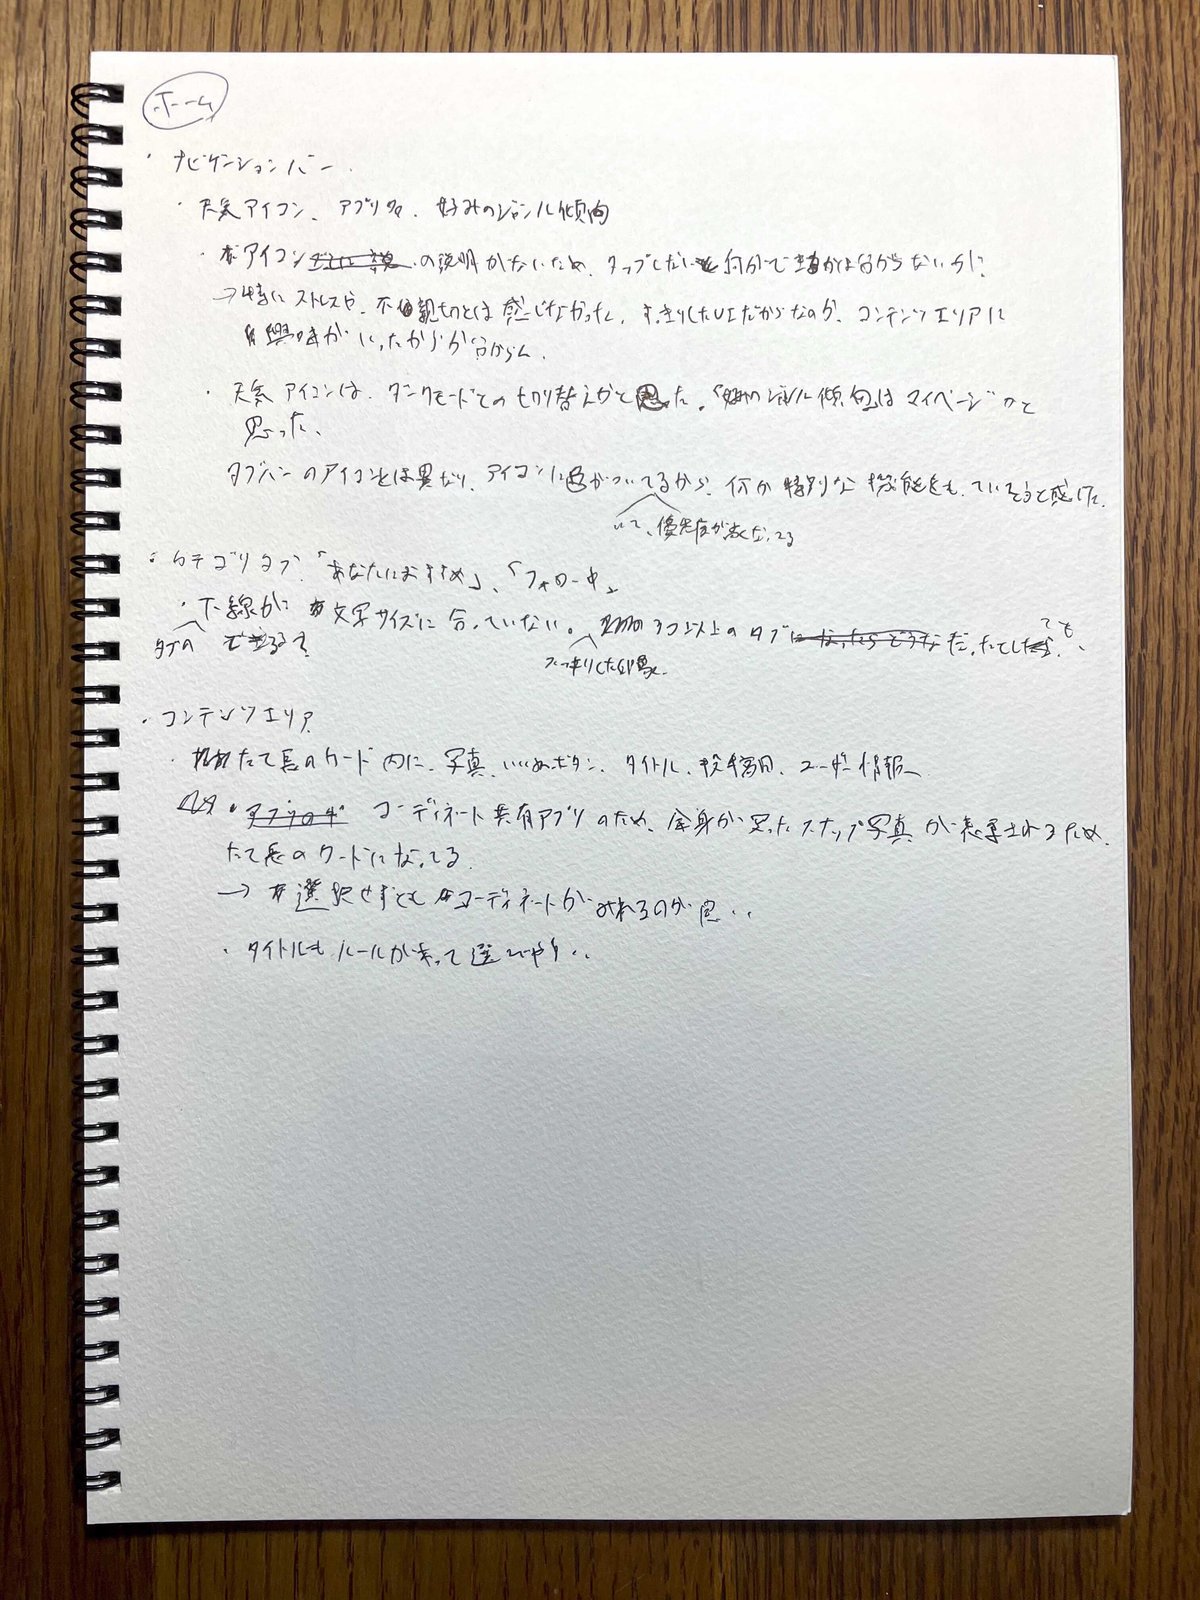 ホーム
・ナビゲーションバー
・天気アイコン、アプリ名、好みのジャンル傾向
・アイコン の説明がないため、タップしないと何がでるかは分からないが、
→特に ストレスや、不親切とは感じなかった。すっきりしたUIだからなのか、コンテンツエリアに
興味がいったからか分からん。
・天気アイコンは、ダークモードとの切り替えかと思った。「好みのジャンル傾向」はマイページかと
思った、
タブバーのアイコンとは異なり、アイコンに色がついてるから、何か特別な機能をもっていそうと感じた。
いて、優先度が高くなってる
・カテゴリタブ、「あなたにおすすめ」、「フォロー中」
・下線が 文字サイズに合っていない。 3つ以上のタブ だったとしても、
タブの
すっきりした印象
・コンテンツエリア
・たて長のカード内に、写真、いいねボタン、タイトル、投稿日、ユーザー情報
・コーディネート共有アプリのため、全身が写ったスナップ写真が表示されるため、
たて長のカードになってる
→ 選択せずともコーディネートがみれるのが良い
・タイトルも ルールがあって選びやすい